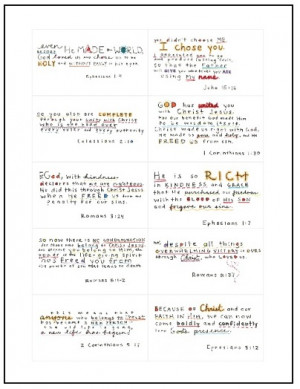 even before He MADE the WORLD,
God loved us and chose us to be
HOLY and
Ephesians 1:4
you didn't choose ME,
I chose you.
I appointed you to go
and produce lasting fruit,
so that the Father
will give you whatever you ask
using My name
John 15:16
So you also are COMPLETE
through your union with Christ
who is the head over
every ruler and every authority
Colossians 2:10
GOD has united you
with Christ Jesus.
For our benefit God made Him
to be wisdom itself.
Christ made us right with God,
he made us pure and holy, and he
FREED us from sin.
1 Corinthians 1:30
God, with kindness,
declares that we are righteous.
He did this through Christ Jesus
when he FREED us from the
penalty for our sins.
Romans 3:24
He is so RICH
in KINDNESS and GRACE
that he purchased our freedom
with the BLOOD of HIS SON
and forgave our sins.
Ephesians 1:7
so now there is NO CONDEMNATION
for those who belong to Christ Jesus.
and because you belong to Him, the
power of the life-giving Spirit
has freed you from
the power of sin that leads to death
Romans 8:1-2
despite all things
OVERWHELMING VICTORY is ours
through Christ, who loved us.
Romans 8:37
this means that
anyone who belongs to Christ
has become a new person.
the old life is gone,
a new life has begun!
2 Corinthians 5:17
BECAUSE of Christ and our
FAITH in Him, we can now
come boldly and confidently
into God's presence.
Ephesians 3:12